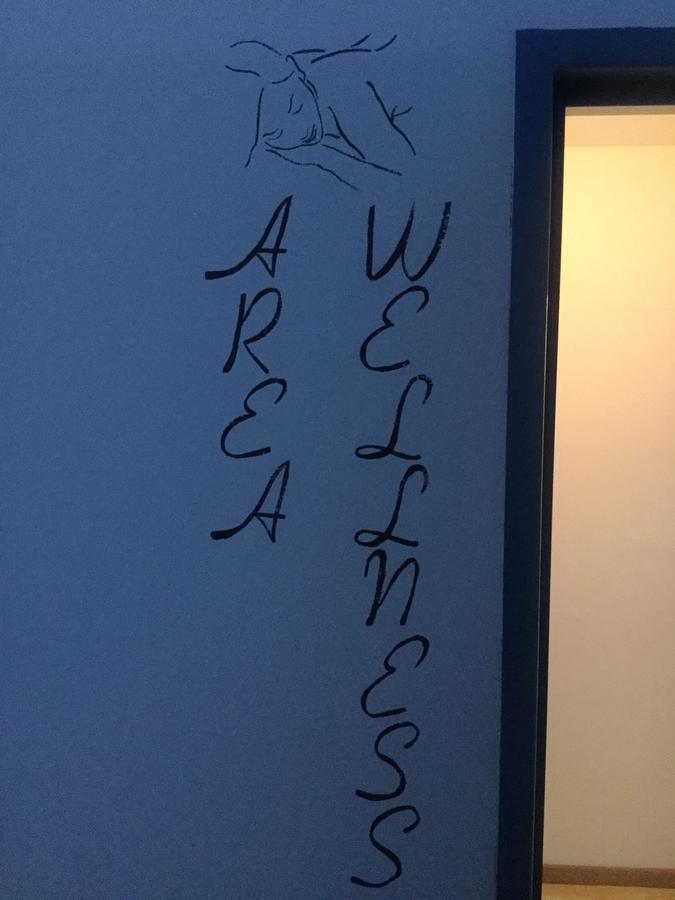 AREA
WELLNESS